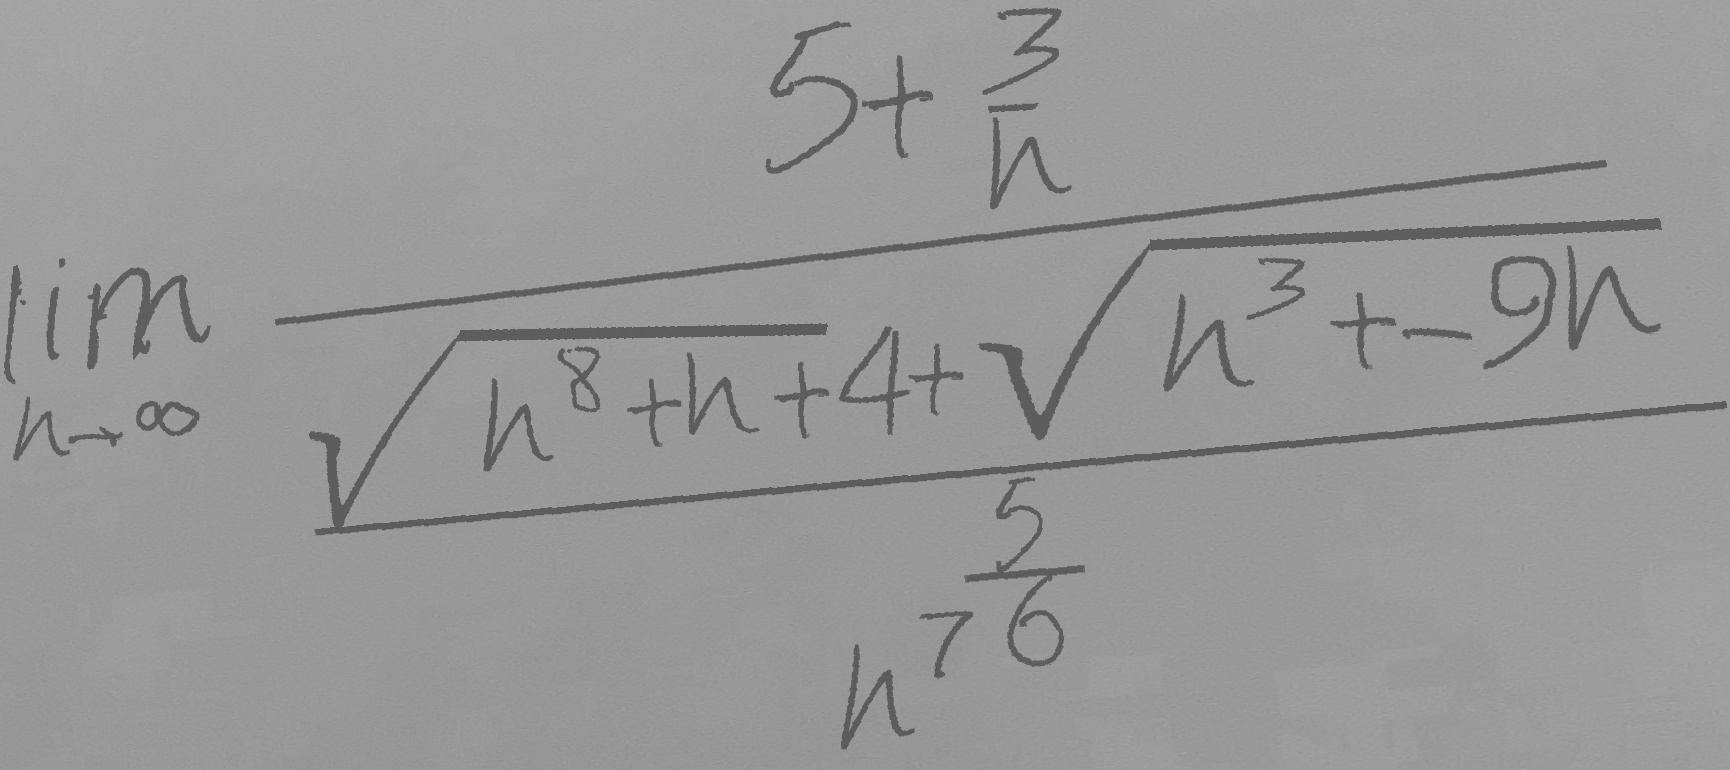 \lim_{n \to \infty} \frac{5 + \frac{3}{n}}{\frac{\sqrt{n^8 + n + 4} + \sqrt{n^3 + -9n}}{n^{7^{\frac{5}{6}}}}}